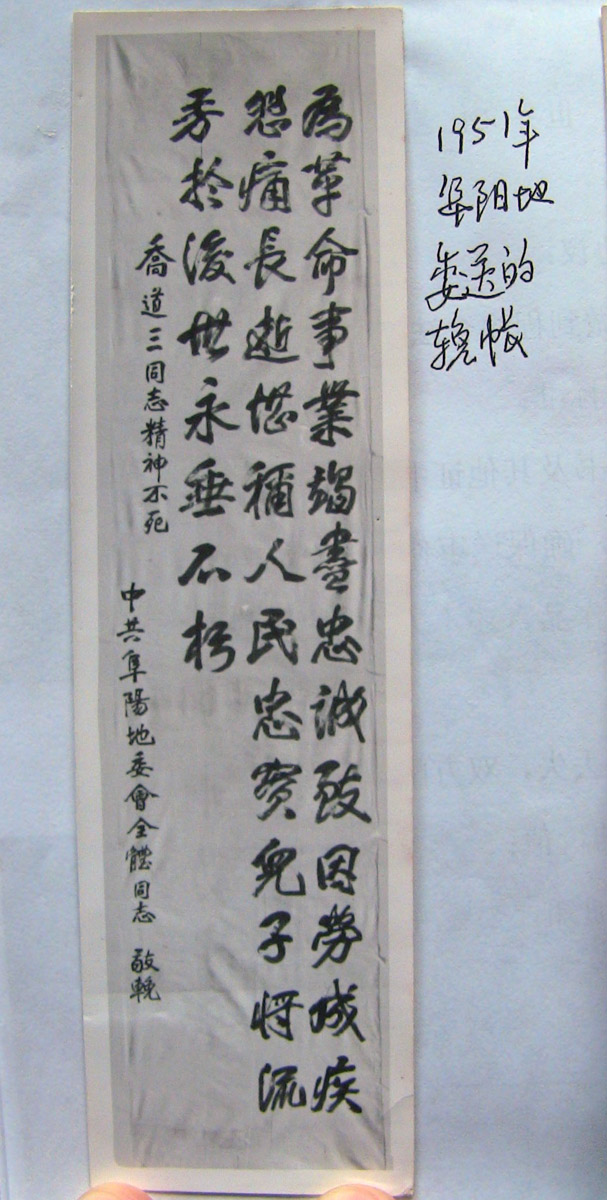 為革命事業竭盡忠誠致因勞成疾
怨痛長逝堪稱人民忠實兒子将流
芳於後世永垂不朽
喬道三同志精神不死
中共阜陽地委會全體同志 敬輓
1951年
阜阳地
委送的
輓帐